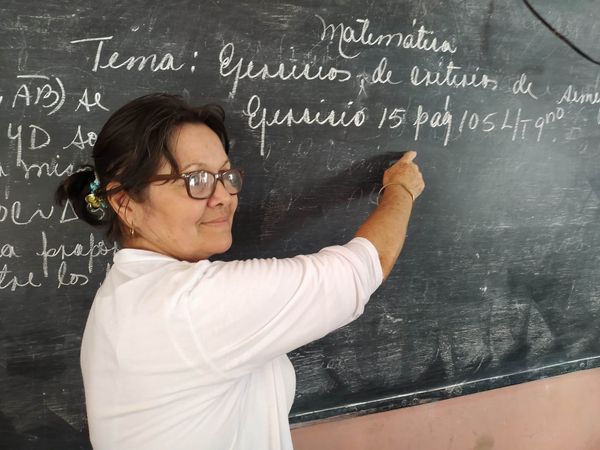 Matemática
Tema: Ejercicios de criterios de
Ejercicio 15 pág 105 L/T 9no
AB) se
YD so
mism
C ~ Δ
a propor
tre los